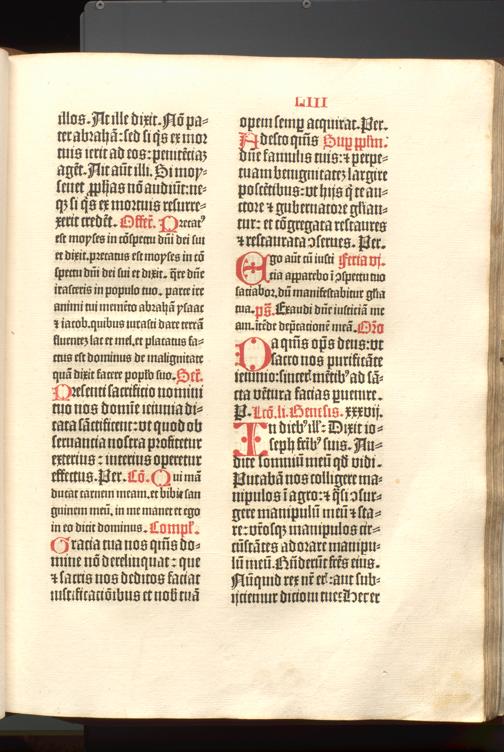 LIII
illos. At ille dixit. Nõ pa-
ter abrahã: sed si q̃s ex mor
tuis ierit ad eos: penitẽtiaʒ
agẽt. Ait aũt illi. Si moy-
sen et ꝓphas nõ audiũt: ne-
qʒ si q̃s ex mortuis resurre-
xerit credẽt. Offert̃. Precatꝰ
est moyses in cõspectu dñi dei sui
et dixit. precatus est moyses in cõ
spectu dñi dei sui et dixit. q̃re dñe
irasceris in populo tuo. parce ire
animi tui memẽto abrahã ysaac
⁊ iacob. quibus iurasti dare terrã
fluentẽ lac et mel. et placatus fa-
ctus est dominus de malignitate
quã dixit facere pop̃lo suo. Scr̃.
Presenti sacrificio nomini
tuo nos domĩe ieiunia di-
cata sãctificent: vt quod ob
seruancia nostra profitetur
exterius: interius operetur
effectus. Per. Cõ. Qui mã
ducat carnem meam. et bibit san
guinem meũ. in me manet et ego
in eo dicit dominus. Compl̃.
Gracia tua nos q̃ms do-
mine nõ derelinquat: que
⁊ sacris nos deditos faciat
iustificaciõibus et nob̃ tuã
opem semꝑ acquirat. Per.
Adesto q̃ms Suꝑ pplm̃.
dñe famulis tuis: ⁊ perpe-
tuam benignitatẽ largire
poscẽtibus: vt hijs q̃ te au-
ctore ⁊ gubernatore gl̃ian-
tur: et cõgregata restaures
⁊ restaurata ꝯserues. Per.
Ego aũt cũ iusti Feria vj.
cia apparebo ĩ ꝯspectu tuo
saciabor. dũ manifestabitur gl̃ia
tua. ps̃. Exaudi dñe iusticiã me
am. itẽde dep̃cationẽ meã. Or̃o
Da q̃ms op̃s deus: vt
sacro nos purificãte
ieiunio: sincer̃ mẽtibꝰ ad sã-
cta vẽtura facias ꝑuenire.
P. Lcõ. li. Genesis. xxxvij.
In diebꝰ ill̃: Dixit io-
seph fr̃ibꝰ suis. Au-
dite somniũ meũ qd̃ vidi.
Putabã nos colligere ma-
nipulos ĩ agro: ⁊ q̃si ꝯsur-
gere manipulũ meũ ⁊ sta-
re: vr̃osqʒ manipulos cir-
cũstãtes adorare manipu-
lũ meũ. Rñderũt fr̃es eius.
Nũquid rex nr̃ er̃: aut sub-
ijciemur dicioni tue: Hec er